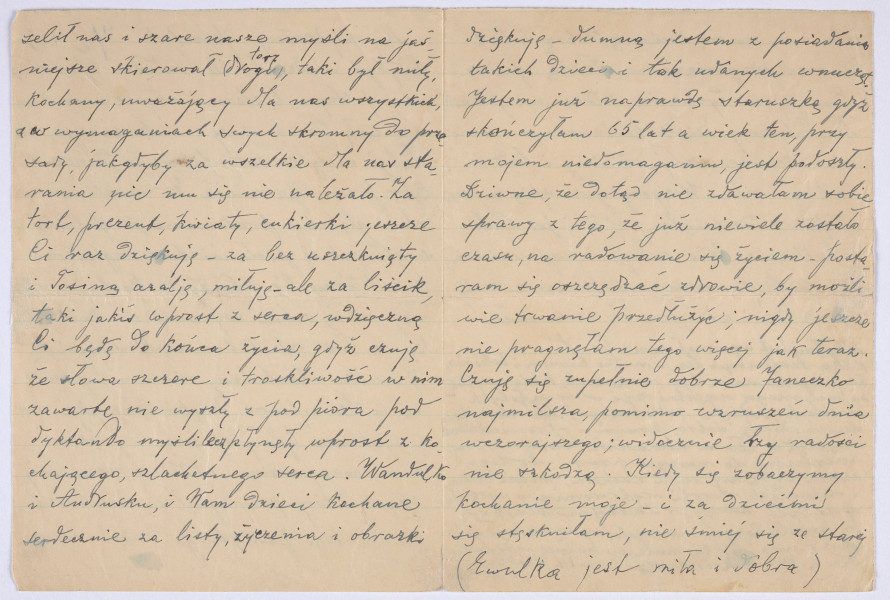 selił nas i szare nasze myśli na jaś-
niejsze skierował torz, taki był miły,
kochany, uważający dla nas wszystkich,
a w wymaganiach swych skromny do prze
sady, jakgdyby za wszelkie dla nas sta-
rania nic mu się nie należało. Za
tort, prezent, kwiaty, cukierki jeszcze
Ci raz dziękuję – za bez uszczknięty
i Tosiną azalją, miłuję – ale za liścik,
taki jakiś wprost z serca, wdzięczną
Ci będę do końca życia, gdyż czuję
że słowa szczere i troskliwość w nim
zawarte nie wyszły z pod pióra pod
dyktando myśli lecz płynęły wprost z ko-
chającego, szlachetnego serca. Wandulko
i Andrusku, i Wam dzieci kochane
serdecznie za listy, życzenia i obrazki
dziękuję – dumną jestem z posiadania
takich dzieci i tak udanych wnucząt.
Jestem już naprawdę staruszką gdyż
skończyłam 65 lat a wiek ten, przy
mojem niedomaganiu, jest podeszły.
Dziwne, że dotąd nie zdawałam sobie
sprawy z tego, że już niewiele zostało
czasu, na radowanie się życiem – posta
ram się oszczędzać zdrowie, by możli
wie trwanie przedłużyć; nigdy jeszcze
nie pragnęłam tego więcej jak teraz.
Czuję się zupełnie dobrze Janeczko
najmilsza, pomimo wzruszeń dnia
wczorajszego; widocznie łzy radości
nie szkodzą. Kiedy się zobaczymy
kochanie moje – i za dziećmi
się stęskniłam, nie śmiej się ze starej
(Ewulka jest miła i dobra)